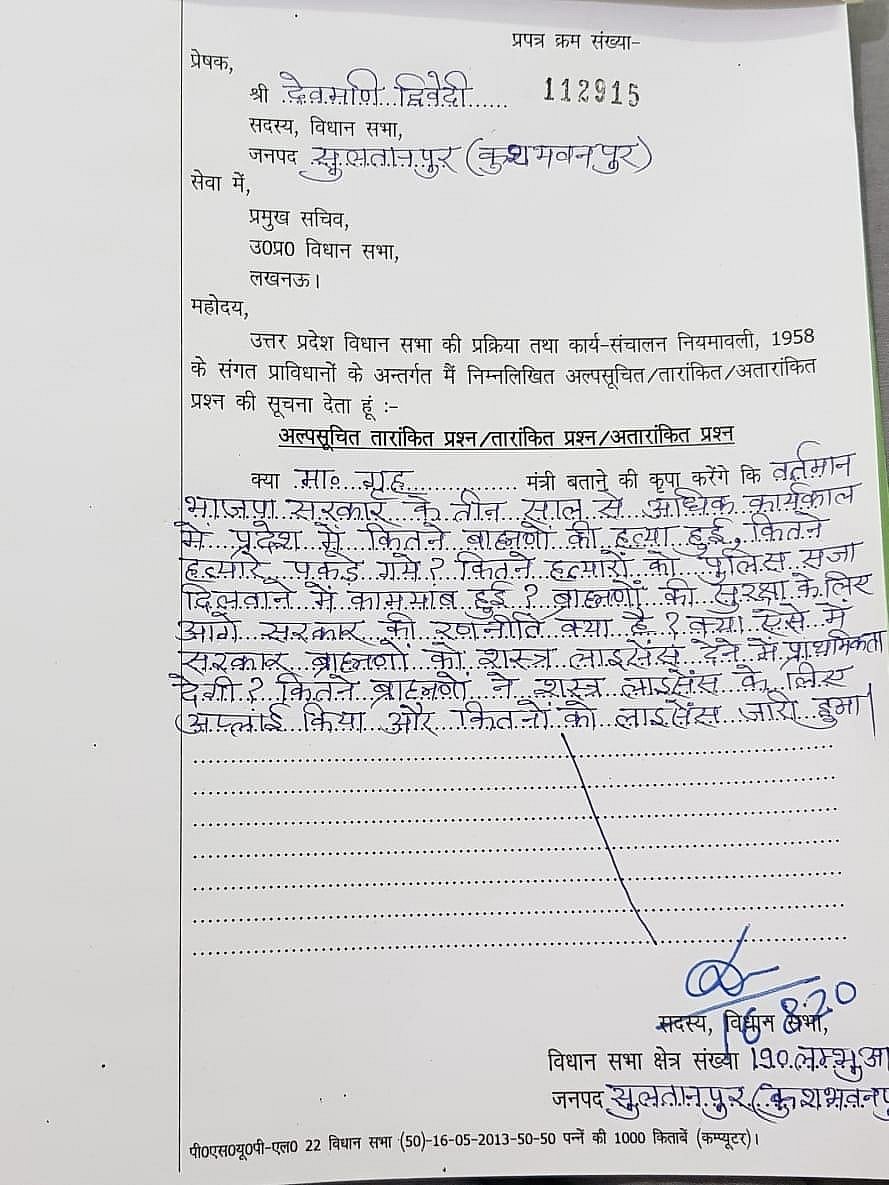 प्रपत्र क्रम संख्या-
प्रेषक,
श्री देवमणि द्विवेदी...... 112915
सदस्य, विधान सभा,
जनपद सुलतानपुर (कुशभवनपुर)
सेवा में,
प्रमुख सचिव,
उ0प्र0 विधान सभा,
लखनऊ।
महोदय,
उत्तर प्रदेश विधान सभा की प्रक्रिया तथा कार्य-संचालन नियमावली, 1958
के संगत प्राविधानों के अन्तर्गत मैं निम्नलिखित अल्पसूचित/तारांकित/अतारांकित
प्रश्न की सूचना देता हूं :-
अल्पसूचित तारांकित प्रश्न/तारांकित प्रश्न/अतारांकित प्रश्न
क्या मा० गृह............... मंत्री बताने की कृपा करेंगे कि वर्तमान
भाजपा सरकार के तीन साल से अधिक कार्यकाल
में प्रदेश में कितने ब्राह्मणों की हत्या हुई, कितने
हत्यारे पकड़े गये? कितने हत्यारों को पुलिस सजा
दिलवाने में कामयाब हुई? ब्राह्मणों की सुरक्षा के लिए
आगे सरकार की रणनीति क्या है? क्या ऐसे में
सरकार ब्राह्मणों को शस्त्र लाइसेंस देने में प्राथमिकता
देगी? कितने ब्राह्मणों ने शस्त्र लाइसेंस के लिए
अप्लाई किया और कितनों को लाइसेंस जारी हुआ।
16 8 20
सदस्य, विधान सभा,
विधान सभा क्षेत्र संख्या 190 लम्भुआ
जनपद सुलतानपुर (कुशभवनपु
पी0एस0यू0पी-एल0 22 विधान सभा (50)-16-05-2013-50-50 पन्नें की 1000 किताबें (कम्प्यूटर)।